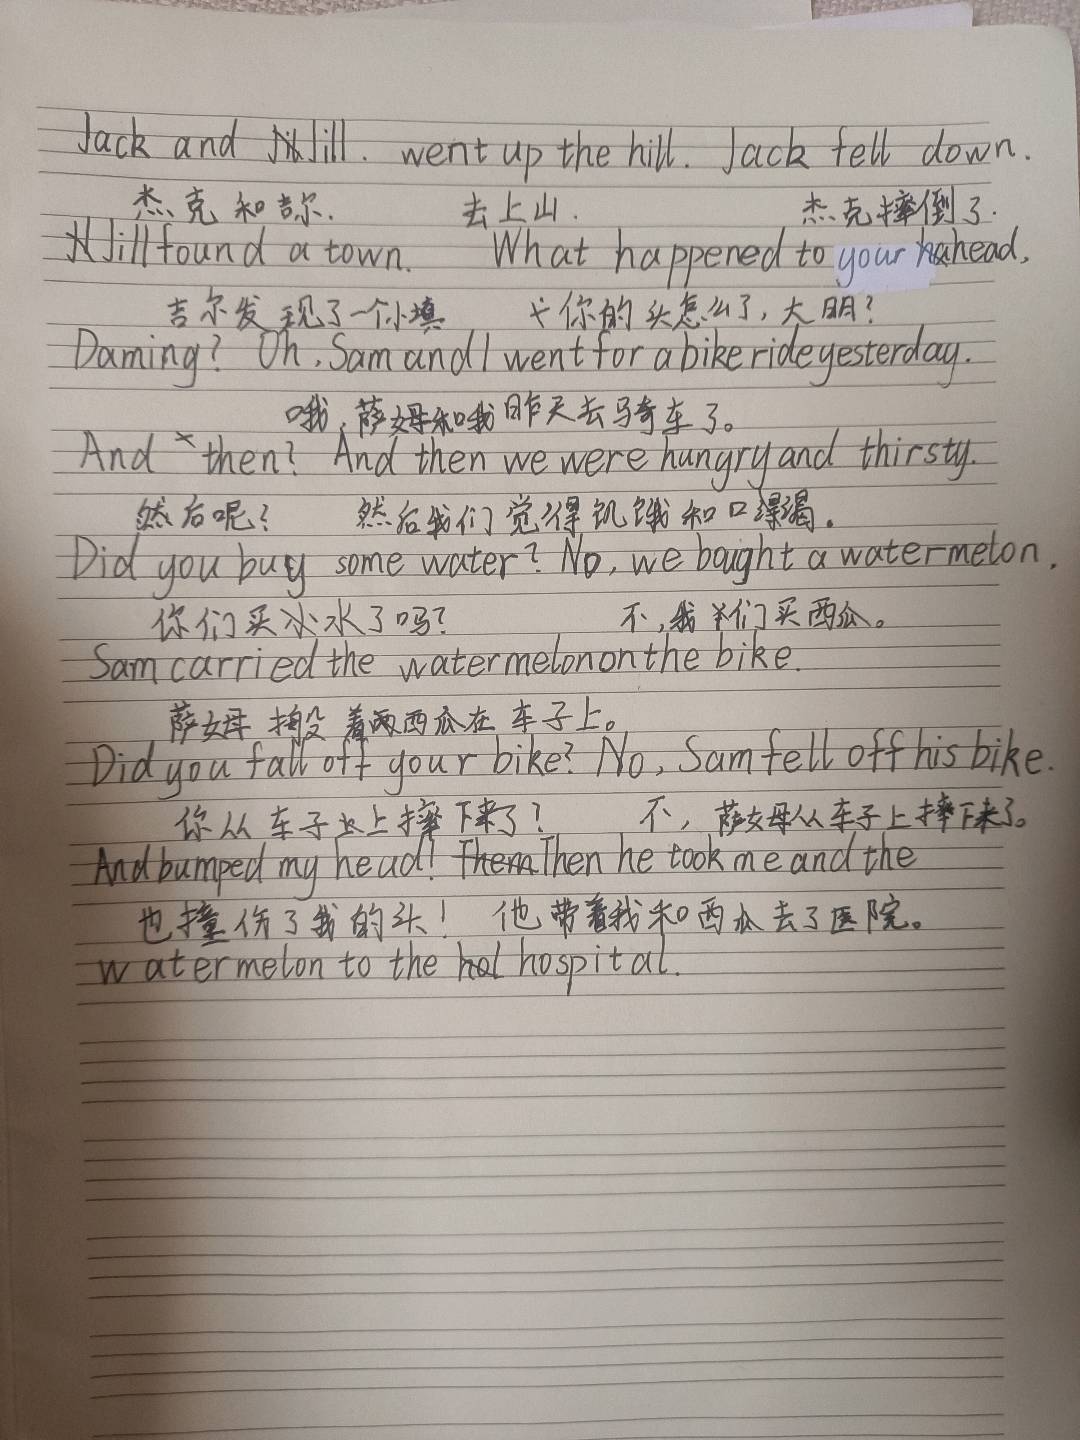 Jack and Jill. went up the hill. Jack fell down.
杰克和吉尔. 去上山. 杰克摔倒了.
Jill found a town. What happened to your head,
吉尔发现了一个小填 你的头怎么了,大明?
Daming? Oh, Sam and I went for a bike ride yesterday.
哦,萨姆和我昨天去骑车了。
And then? And then we were hungry and thirsty.
然后呢? 然后我们觉得饥饿和口渴。
Did you buy some water? No, we bought a watermelon.
你们买水了吗? 不,我们买西瓜。
Sam carried the watermelon on the bike.
萨姆搬着西瓜在车子上。
Did you fall off your bike? No, Sam fell off his bike.
你从车子上摔下来了? 不,萨姆从车子上摔下来了。
And bumped my head! Then he took me and the
也撞伤了我的头! 他带着我和西瓜去了医院。
watermelon to the hospital.